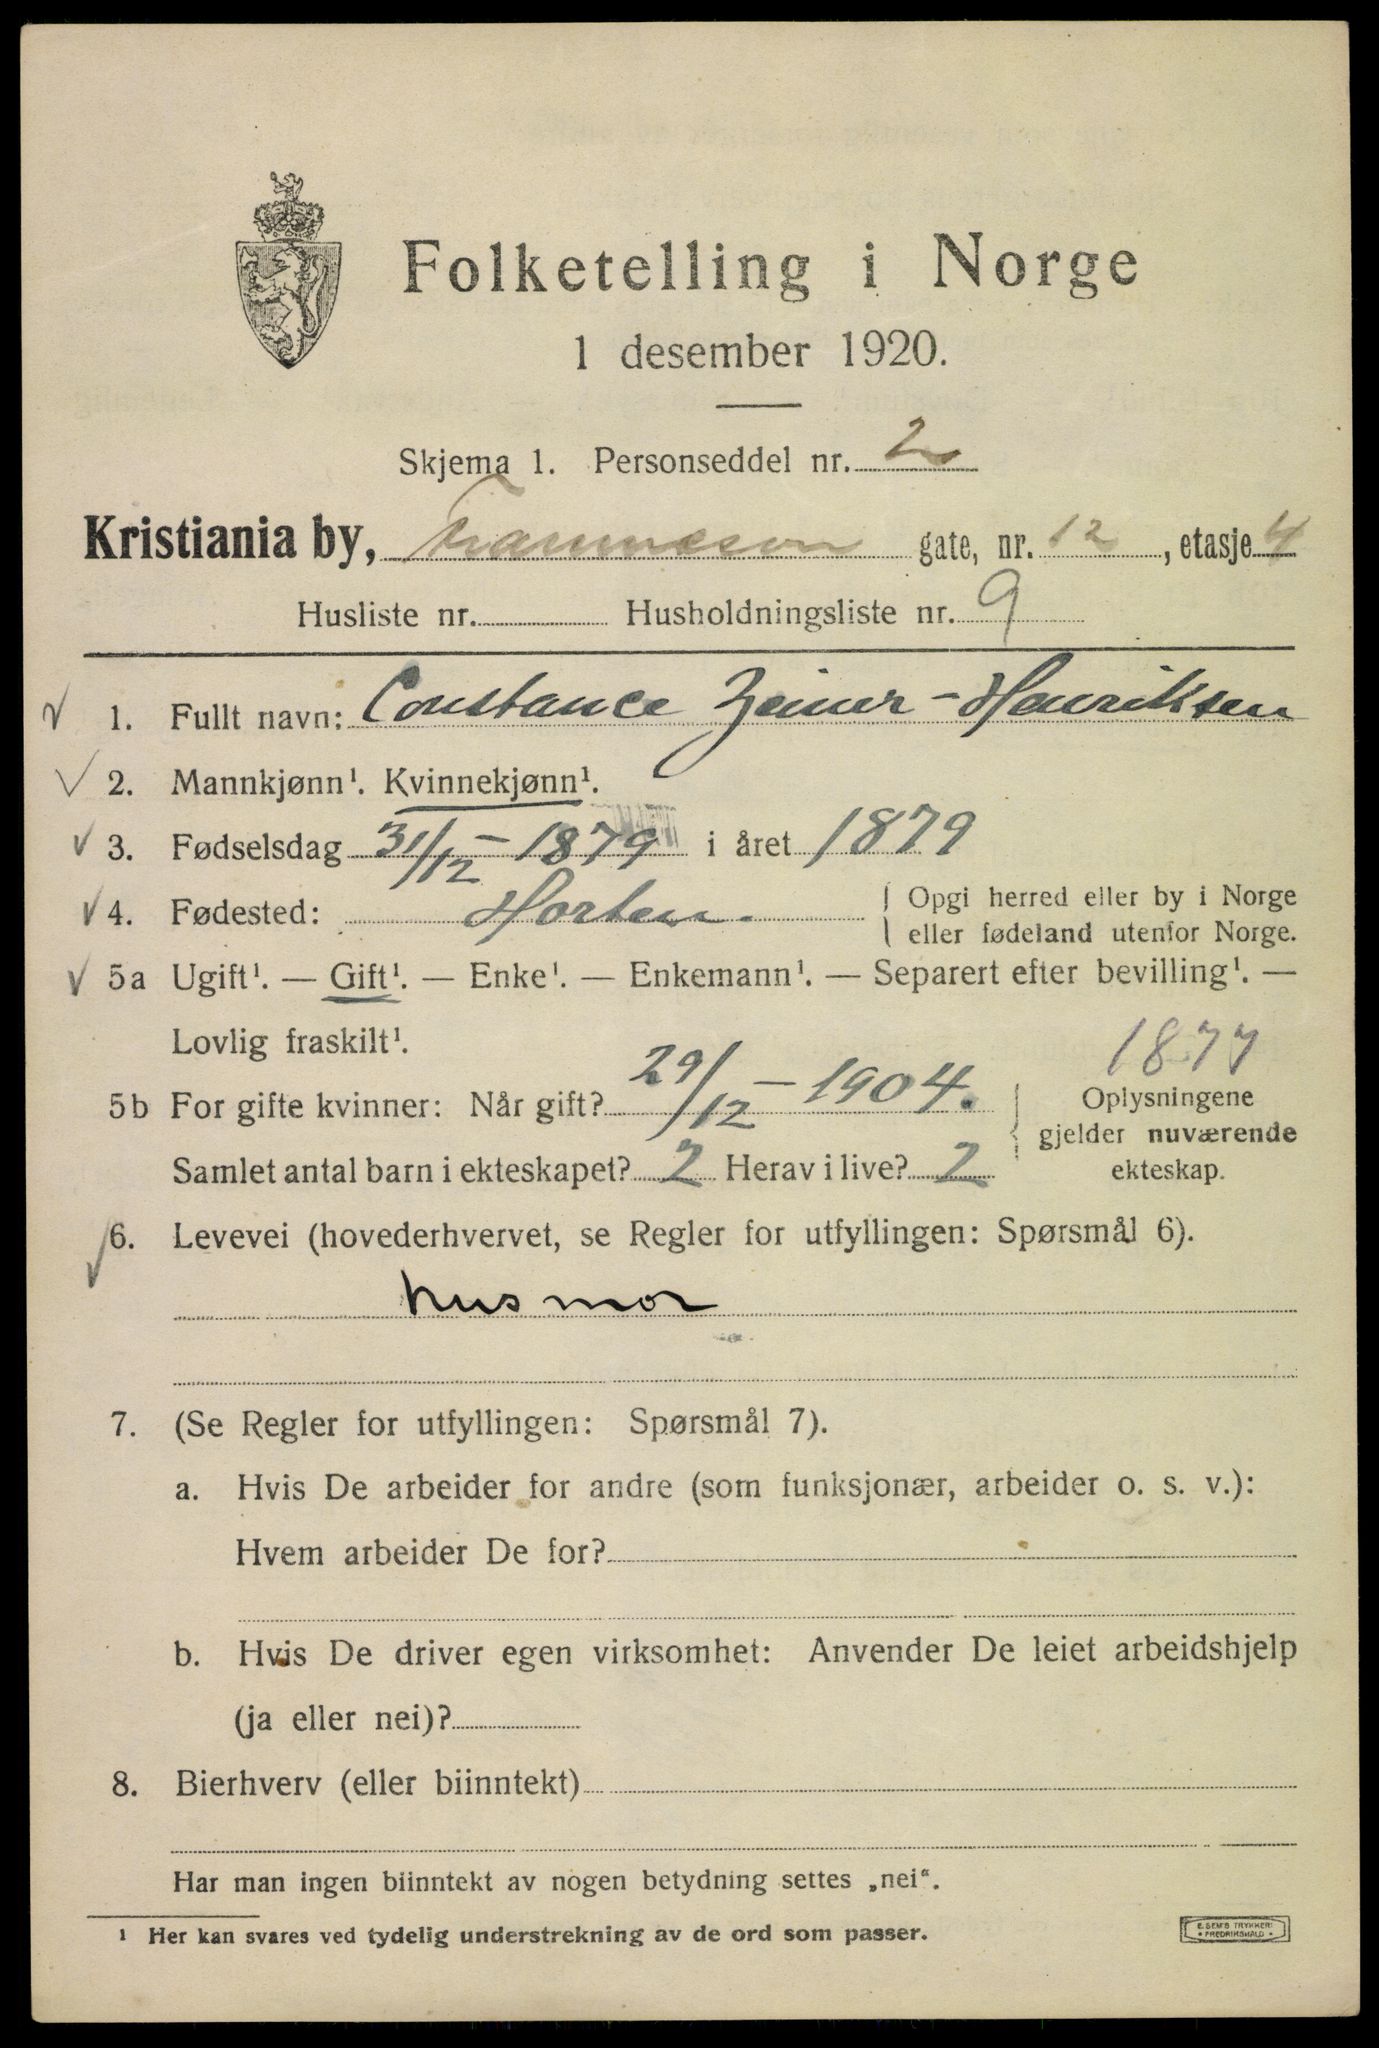 Folketelling i Norge
1 desember 1920.
Skjema 1. Personseddel nr. 2
Kristiania by, gate, nr. 12, etasje 4
Husliste nr. Husholdningsliste nr. 9
1. Fullt navn: Constance Zeiner-Henriksen
2. Mannkjønn¹. Kvinnekjønn¹.
3. Fødselsdag 31/12 - 1879 i året 1879
4. Fødested: Horten. Opgi herred eller by i Norge
eller fødeland utenfor Norge.
5a Ugift¹. — Gift¹. — Enke¹. — Enkemann¹. — Separert efter bevilling¹. —
Lovlig fraskilt¹.
1877
5b For gifte kvinner: Når gift? 29/12 - 1904. Oplysningene
gjelder nuværende
Samlet antal barn i ekteskapet? 2 Herav i live? 2 ekteskap.
6. Levevei (hovederhvervet, se Regler for utfyllingen: Spørsmål 6).
husmor
7. (Se Regler for utfyllingen: Spørsmål 7).
a. Hvis De arbeider for andre (som funksjonær, arbeider o. s. v.):
Hvem arbeider De for?
b. Hvis De driver egen virksomhet: Anvender De leiet arbeidshjelp
(ja eller nei)?
8. Bierhverv (eller biinntekt)
Har man ingen biinntekt av nogen betydning settes „nei“.
¹ Her kan svares ved tydelig understrekning av de ord som passer.
E. SEM'S TRYKKERI
• FREDRIKSHALD •